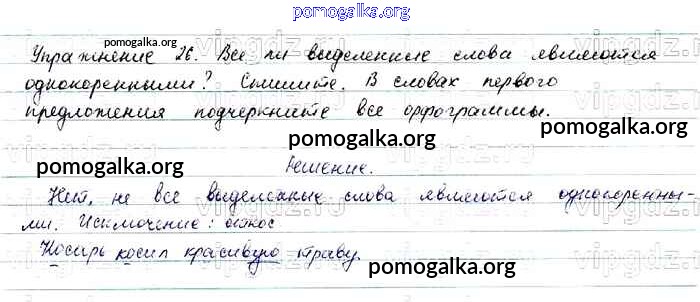 pomogalka.org
Упражнение 26. Все ли выделенные слова являются
pomogalka.org
однокоренными? Спишите. В словах первого
vipgdz.ru
предложения подчеркните все орфограммы.
pomogalka.org pomogalka.org
Решение.
pomogalka.org
Нет, не все выделенные слова являются однокоренны-
ми. Исключение: откос
vipgdz.ru
Косарь косил красивую траву.
pomogalka.org
pomogalka.org